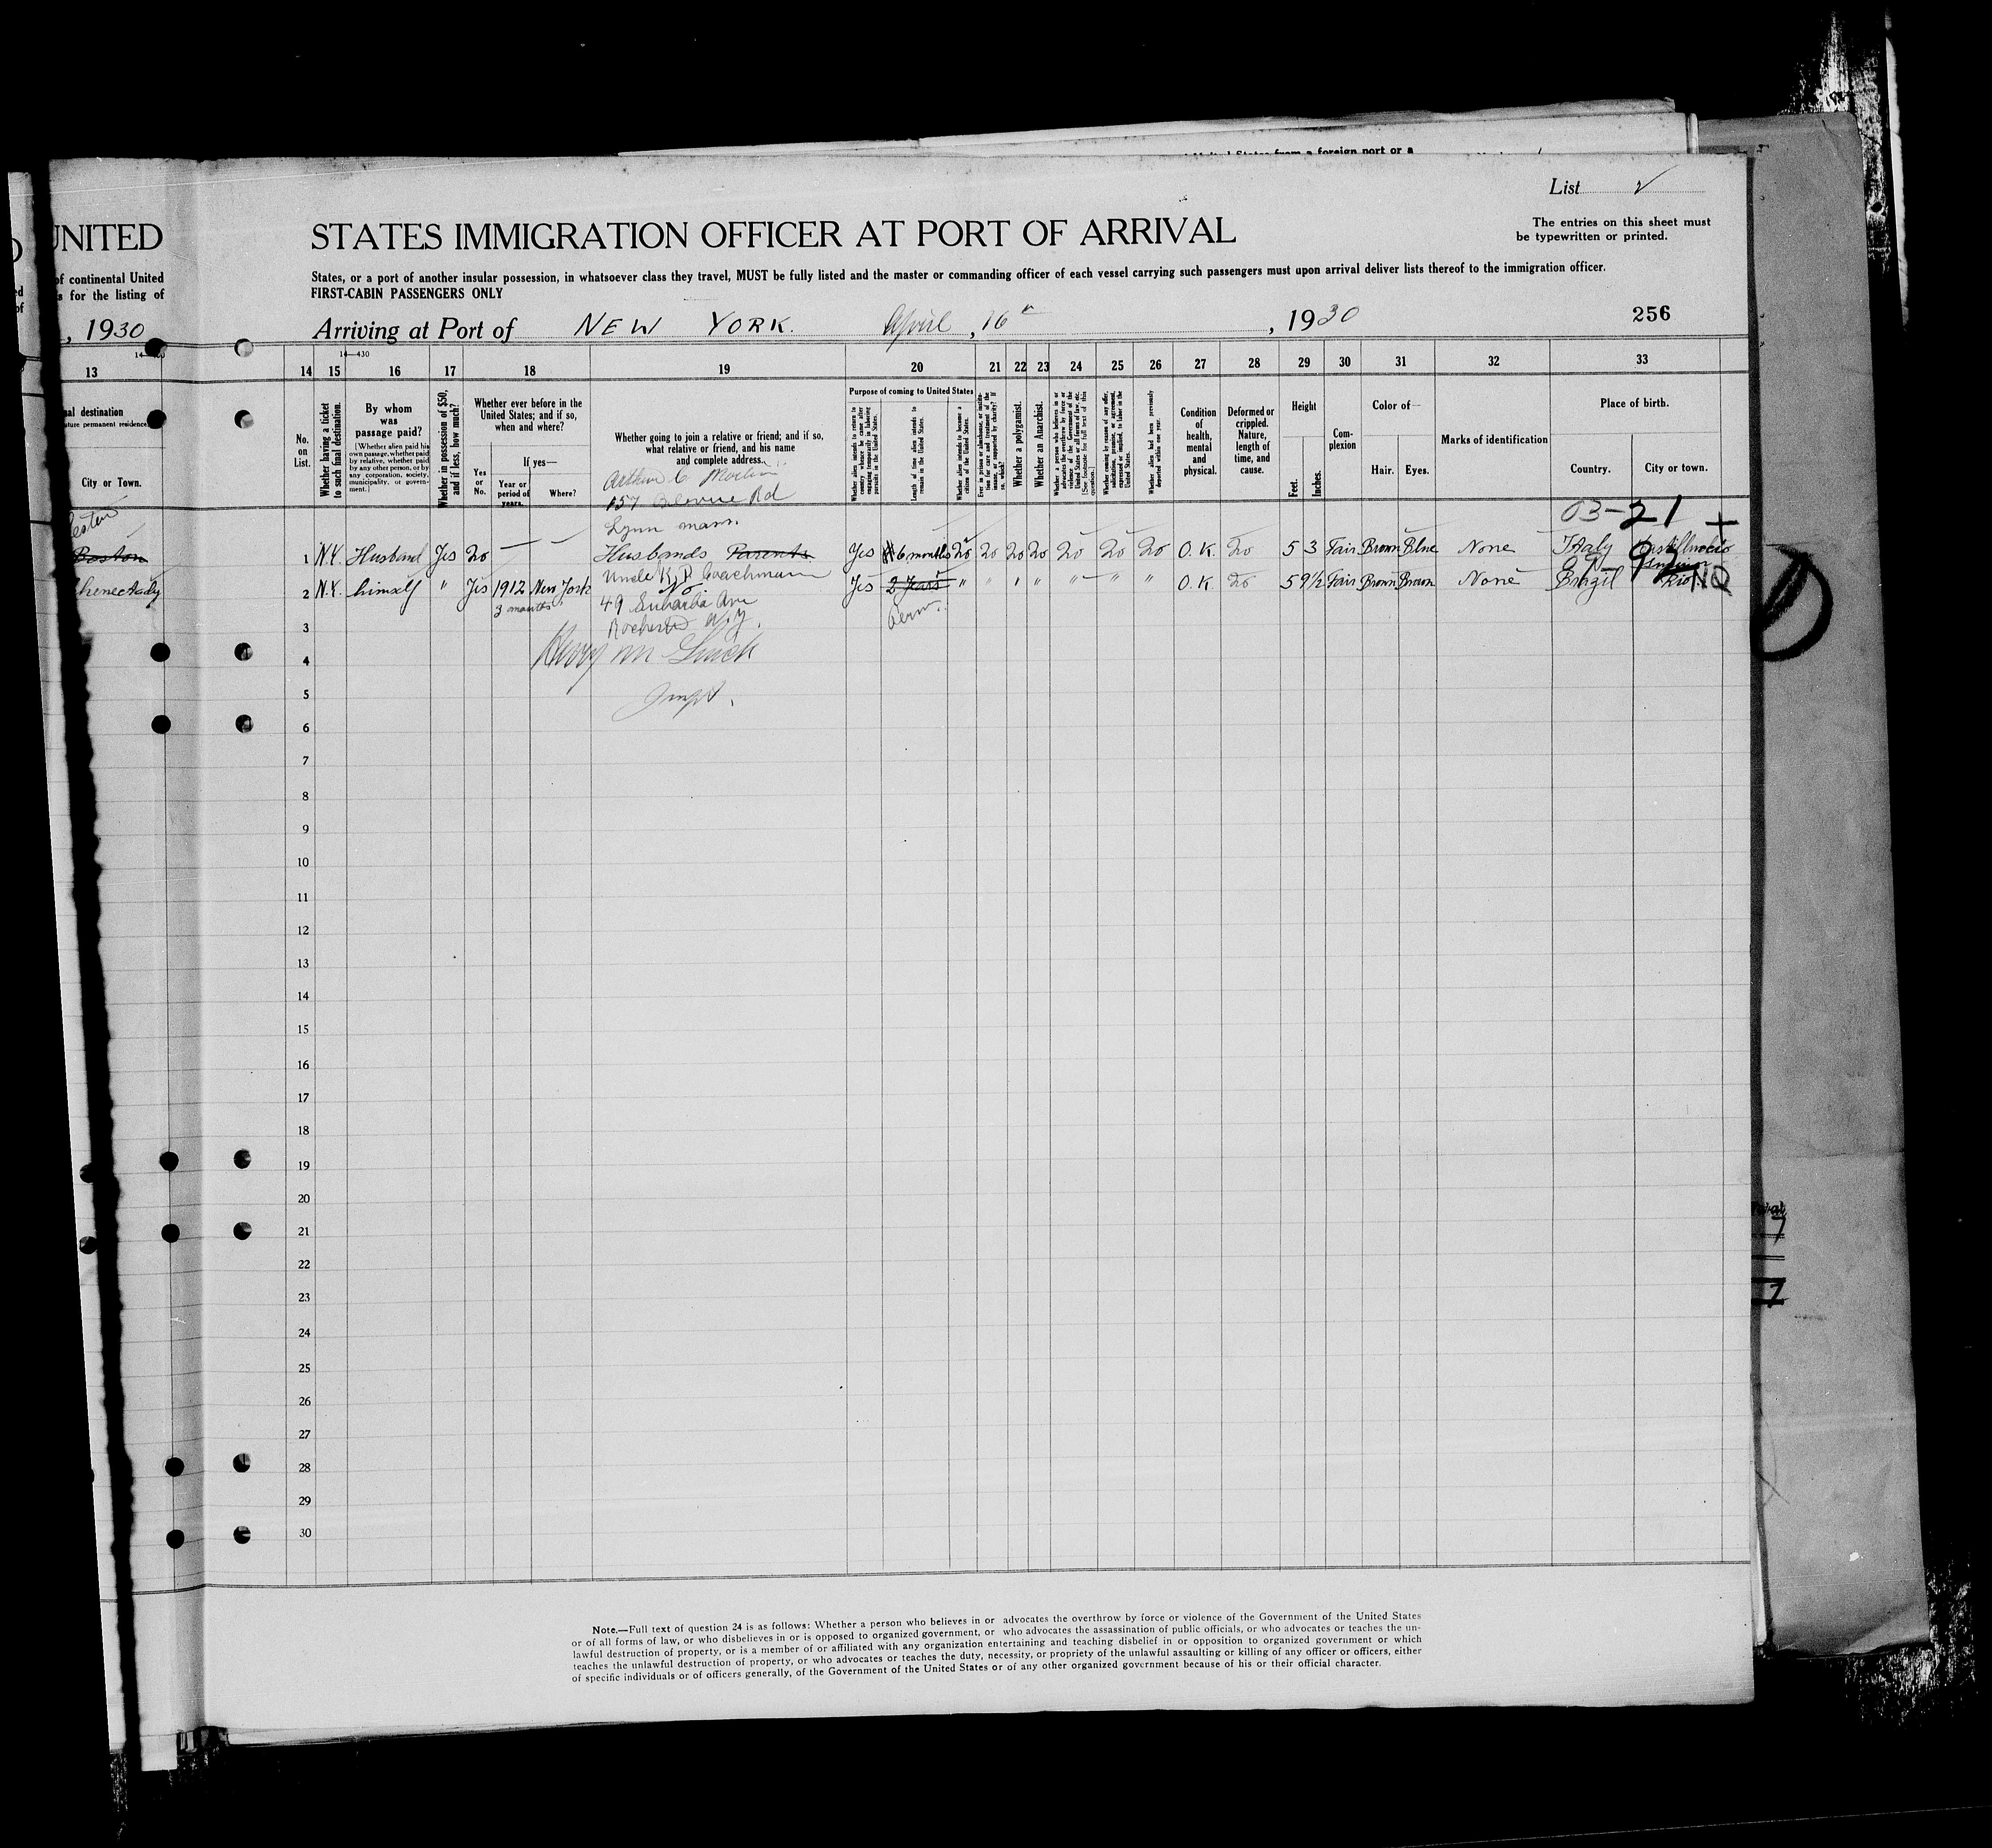 United States from a foreign port or a
List 2
UNITED
STATES IMMIGRATION OFFICER AT PORT OF ARRIVAL
The entries on this sheet must
be typewritten or printed.
of continental United
s for the listing of
States, or a port of another insular possession, in whatsoever class they travel, MUST be fully listed and the master or commanding officer of each vessel carrying such passengers must upon arrival deliver lists thereof to the immigration officer.
FIRST-CABIN PASSENGERS ONLY
, 1930
Arriving at Port of NEW YORK. April, 16th, 1930
256
14—430
13 14 15 16 17 18 19 20 21 22 23 24 25 26 27 28 29 30 31 32 33
al destination
uture permanent residence
City or Town.
No. on List.
Whether having a ticket to such final destination.
By whom was passage paid?
(Whether alien paid his own passage, whether paid by relative, whether paid by any other person, or by any corporation, society, municipality, or government.)
Whether in possession of $50, and if less, how much?
Whether ever before in the United States; and if so, when and where?
Yes or No.
If yes—
Year or period of years.
Where?
Whether going to join a relative or friend; and if so, what relative or friend, and his name and complete address.
Purpose of coming to United States
Whether alien intends to return to country whence he came after engaging temporarily in laboring pursuits in the United States.
Length of time alien intends to remain in the United States.
Whether alien intends to become a citizen of the United States.
Ever in prison or almshouse, or institution for care and treatment of the insane, or supported by charity? If so, which?
Whether a polygamist.
Whether an Anarchist.
Whether coming by reason of any offer, solicitation, promise, or agreement, expressed or implied, to labor in the United States.
Whether alien had been previously deported within one year.
Condition of health, mental and physical.
Deformed or crippled. Nature, length of time, and cause.
Height
Feet. Inches.
Complexion
Color of—
Hair. Eyes.
Marks of identification
Place of birth.
Country. City or town.
Arthur C
157 Rd
Lynn mass.
03-21 +
Boston 1 N.Y. Husband Yes No — — Husbands Parents Yes 6 months No No No No No No No O.K. No 5 3 Fair Brown Blue None Italy
Uncle
henectady 2 N.Y. himself " Yes 1912 New York Yes 2 Years " " " " " " " O.K. No 5 9½ Fair Brown Brown None Brazil Rio
3 months
49 Ave
Rochester N.Y.
3
4
5
Inspt.
6
7
8
9
10
11
12
13
14
15
16
17
18
19
20
21
22
23
24
25
26
27
28
29
30
Note.—Full text of question 24 is as follows: Whether a person who believes in or advocates the overthrow by force or violence of the Government of the United States
or of all forms of law, or who disbelieves in or is opposed to organized government, or who advocates the assassination of public officials, or who advocates or teaches the un-
lawful destruction of property, or is a member of or affiliated with any organization entertaining and teaching disbelief in or opposition to organized government or which
teaches the unlawful destruction of property, or who advocates or teaches the duty, necessity, or propriety of the unlawful assaulting or killing of any officer or officers, either
of specific individuals or of officers generally, of the Government of the United States or of any other organized government because of his or their official character.